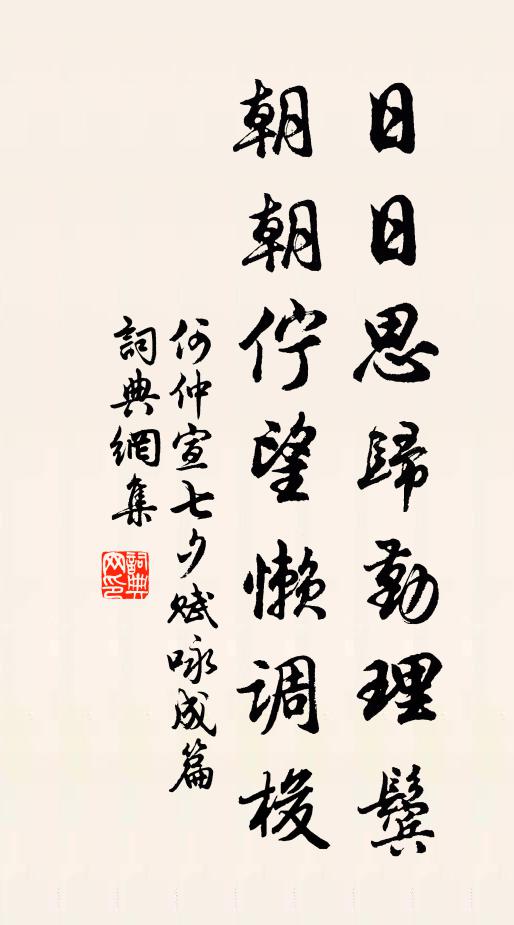 日日思歸勤理鬢
朝朝佇望懶調梭
何仲宣七夕賦咏成篇
詞典網集
詞典網印